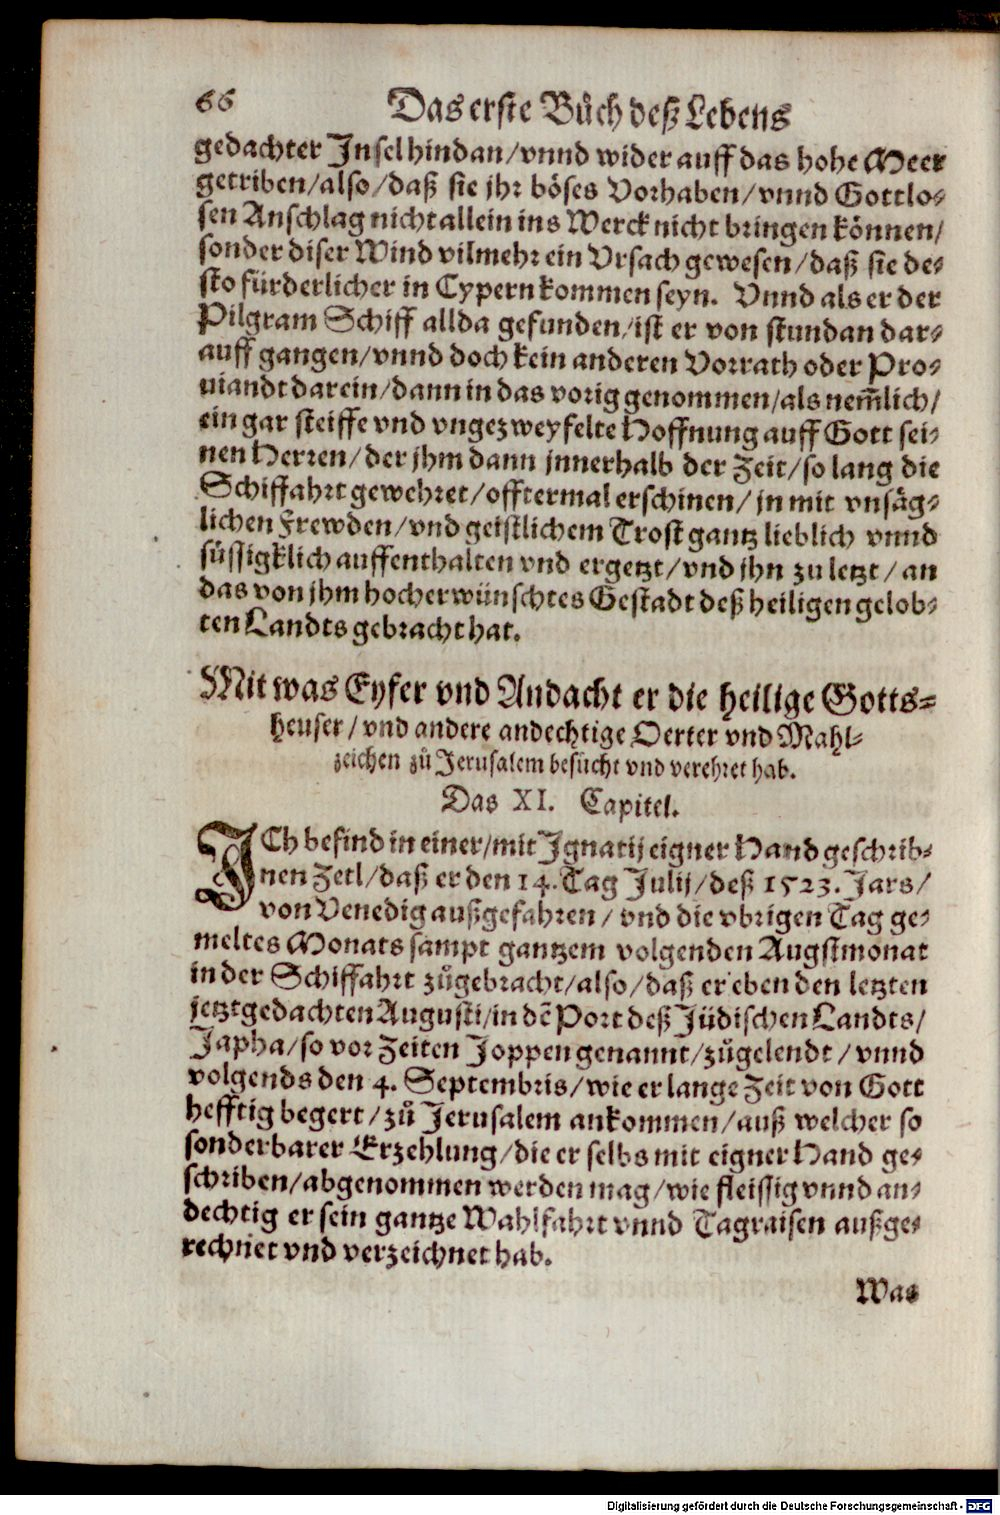 66 Das erste Bůch deß Lebens
gedachter Insel hindan/vnnd wider auff das hohe Meer
getriben/also/daß sie jhr böses Vorhaben/vnnd Gottlo-
sen Anschlag nicht allein ins Werck nicht bringen können/
sonder diser Wind vilmehr ein Vrsach gewesen/daß sie de-
sto fürderlicher in Cypern kommen seyn. Vnnd als er der
Pilgram Schiff allda gefunden/ist er von stundan dar-
auff gangen/vnnd doch kein anderen Vorrath oder Pro-
uiandt darein/dann in das vorig genommen/als nem̃lich/
ein gar steiffe vnd vngezweyfelte Hoffnung auff Gott sei-
nen Herren/der jhm dann jnnerhalb der Zeit/so lang die
Schiffahrt gewehret/offtermal erschinen/jn mit vnsäg-
lichen Frewden/vnd geistlichem Trost gantz lieblich vnnd
süssigklich auffenthalten vnd ergetzt/vnd jhn zu letzt/an
das von jhm hocherwünschtes Gestadt deß heiligen gelob-
ten Landts gebracht hat.
Mit was Eyfer vnd Andacht er die heilige Gotts-
heuser/vnd andere andechtige Oerter vnd Mahl-
zeichen zů Jerusalem besůcht vnd verehret hab.
Das XI. Capitel.
ICh befind in einer/mit Ignatij eigner Hand geschrib-
nen Zetl/daß er den 14. Tag Julij/deß 1523. Jars/
von Venedig außgefahren/vnd die vbrigen Tag ge-
meltes Monats sampt gantzem volgenden Augstmonat
in der Schiffahrt zůgebracht/also/daß er eben den letzten
jetztgedachten Augusti/in dẽ Port deß Jüdischen Landts/
Japha/so vor Zeiten Joppen genannt/zůgelendt/vnnd
volgends den 4. Septembris/wie er lange Zeit von Gott
hefftig begert/zů Jerusalem ankommen/auß welcher so
sonderbarer Erzehlung/die er selbs mit eigner Hand ge-
schriben/abgenommen werden mag/wie fleissig vnnd an-
dechtig er sein gantze Wahlfahrt vnnd Tagraisen außge-
rechnet vnd verzeichnet hab.
Was
Digitalisierung gefördert durch die Deutsche Forschungsgemeinschaft - DFG